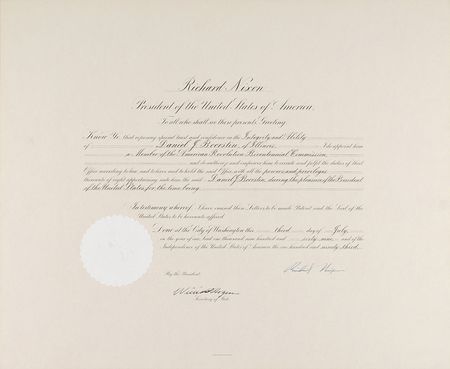 Richard Nixon
President of the United States of America.
To all who shall see these presents, Greeting:
Know Ye, that reposing special trust and confidence in the Integrity and Ability
of Daniel J. Boorstin, of Illinois, I do appoint him
a Member of the American Revolution Bicentennial Commission,
and do authorize and empower him to execute and fulfil the duties of that
Office according to law, and to have and to hold the said Office, with all the powers and privileges
thereunto of right appertaining unto him the said Daniel J. Boorstin, during the pleasure of the President
of the United States for the time being.
In testimony whereof, I have caused these Letters to be made Patent and the Seal of the
United States to be hereunto affixed.
Done at the City of Washington this third day of July,
in the year of our Lord one thousand nine hundred and sixty-nine and of the
Independence of the United States of America the one hundred and ninety-third.
Richard Nixon
By the President:
William P. Rogers
Secretary of State.